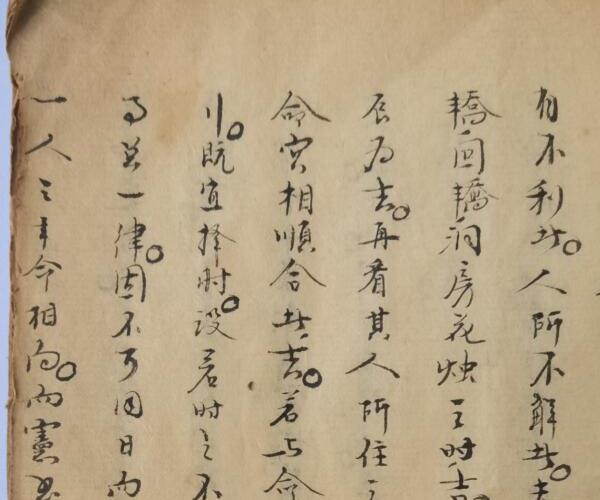 有不利者。人所不解者。
轎回轎洞房花烛之时
辰为吉。再看其人所住之
命宫相順合者吉。若与命
刂。既宜择时。设若时之不
一律。固不可因日
一人之年命相向。而